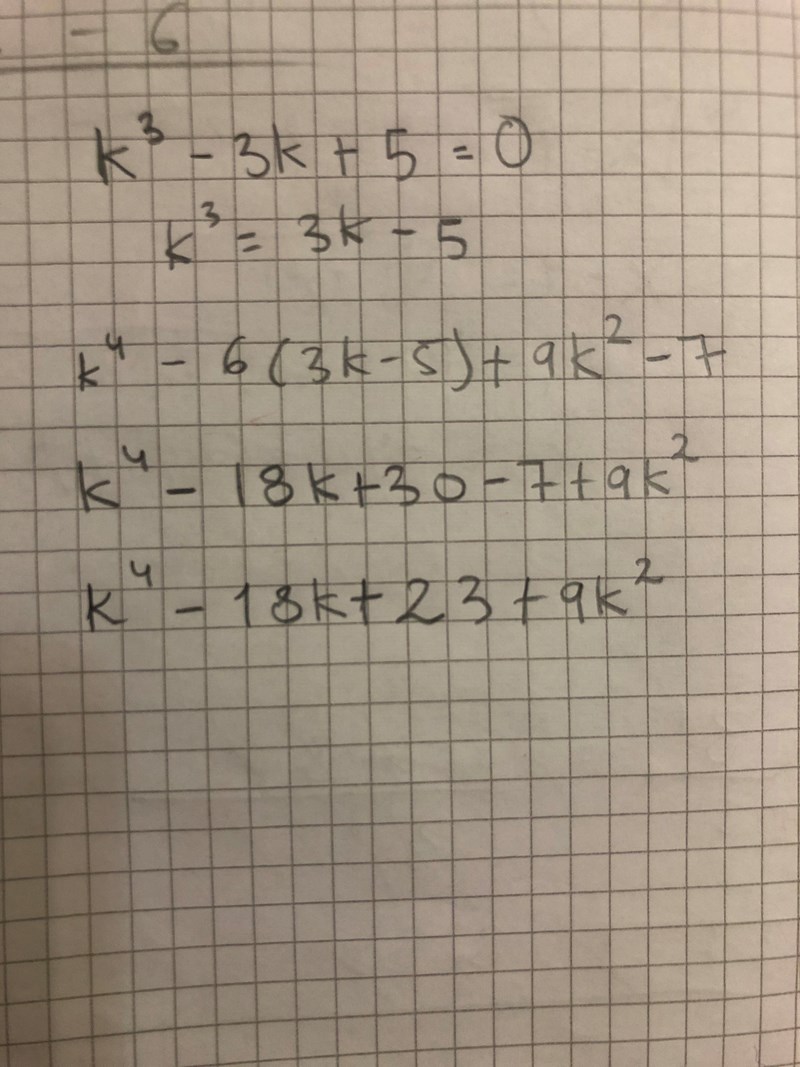 - 6
k³ - 3k + 5 = 0
k³ = 3k - 5
k⁴ - 6(3k-5) + 9k² - 7
k⁴ - 18k + 30 - 7 + 9k²
k⁴ - 18k + 23 + 9k²